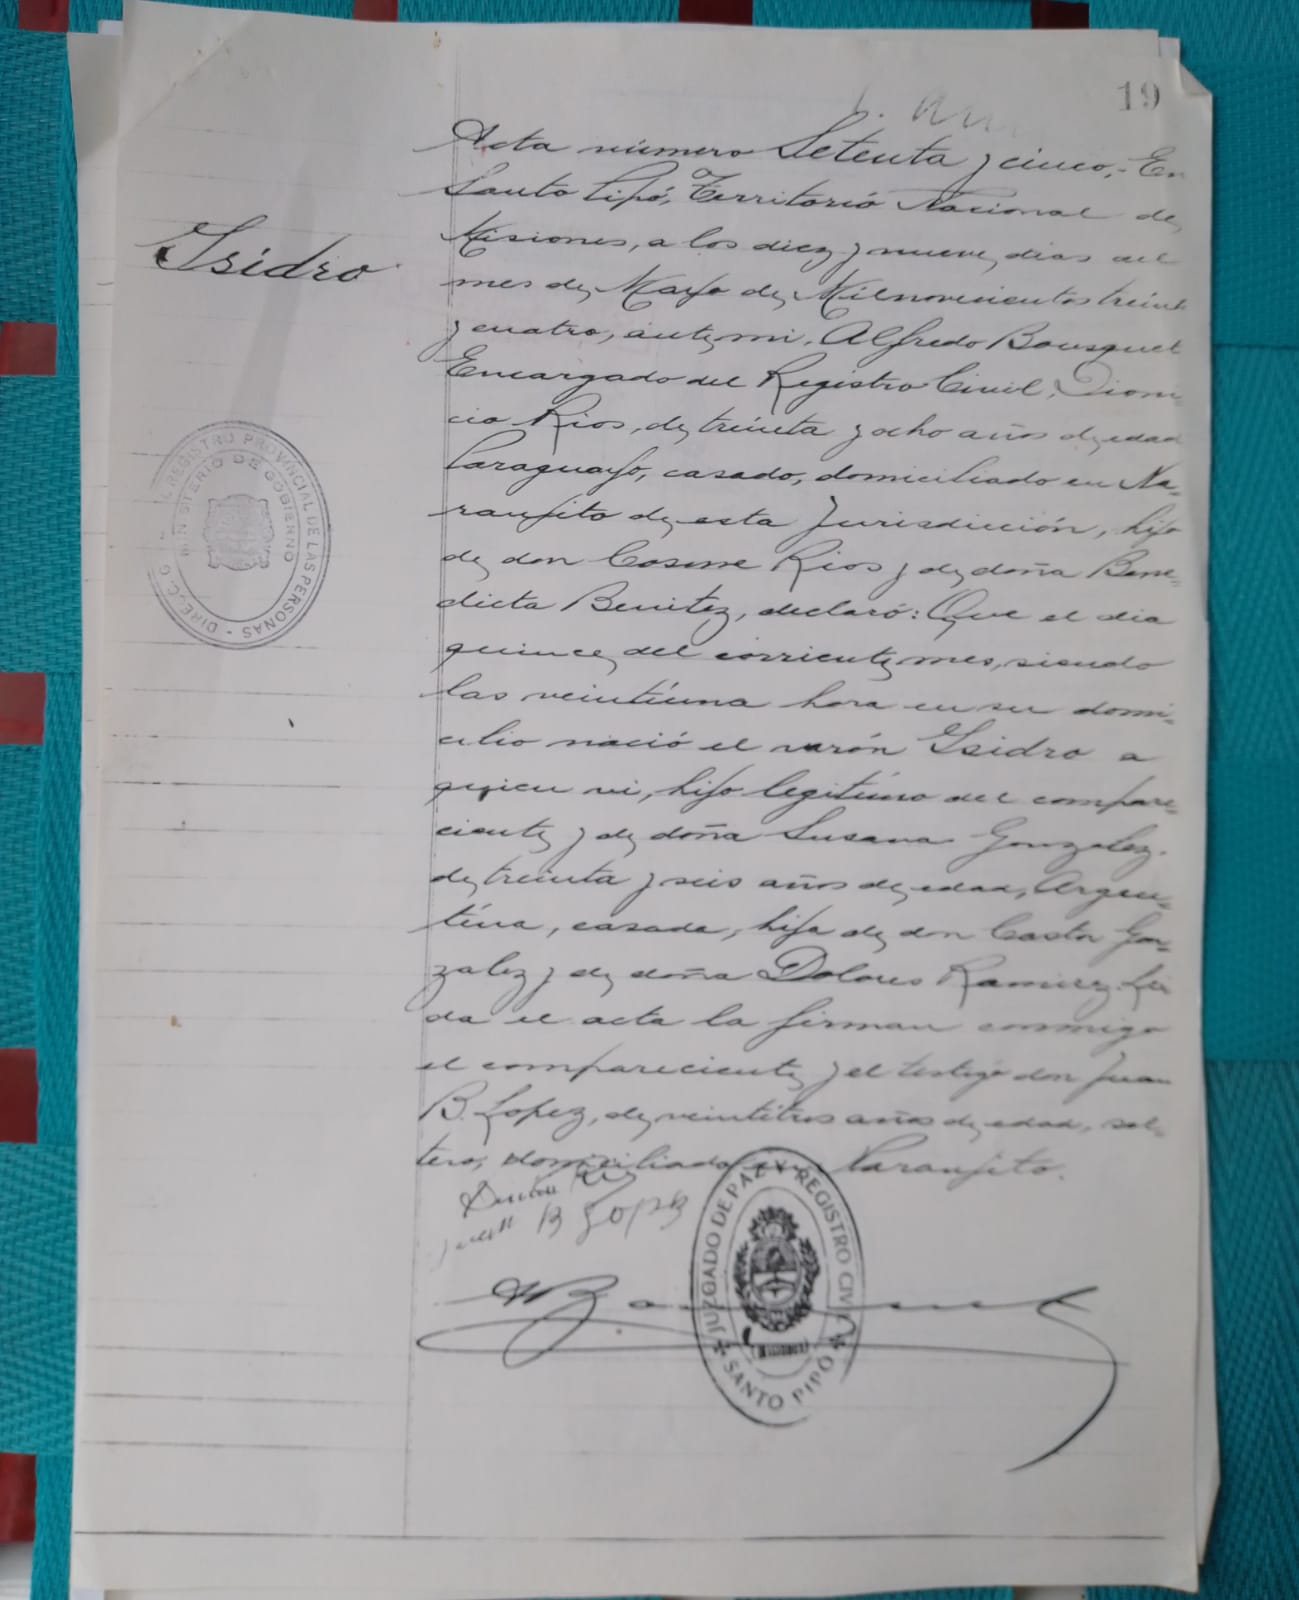 19
Acta número Setenta y cinco.- En
Santo Pipó, Territorio Nacional de
Misiones, a los diez y nueve dias del
mes de Mayo de Mil novecientos treinta
y cuatro, ante mi, Alfredo Bousquet
Encargado del Registro Civil, Dioni-
cio Rios, de treinta y ocho años de edad
Paraguayo, casado, domiciliado en Na-
ranjito de esta Jurisdicción, hijo
de don Cosme Rios y de doña Bene-
dicta Benitez, declaró: Que el dia
quince del corriente mes, siendo
las veintiuna hora en su domi-
cilio nació el varón Isidro a
quien vi, hijo legitimo del compare-
ciente y de doña Susana Gonzalez.
de treinta y seis años de edad, Argen-
tina, casada, hija de don Castor Gon-
zalez y de doña Dolores Ramirez. Lei-
da el acta la firman conmigo
el compareciente y el testigo don Juan
B. Lopez, de veintitres años de edad, sol-
tero, domiciliado en Naranjito.
Isidro
REGISTRO PROVINCIAL DE LAS PERSONAS - DIREC. G
MINISTERIO DE GOBIERNO
Juan B Lopez
JUZGADO DE PAZ Y REGISTRO CIVIL
SANTO PIPÓ